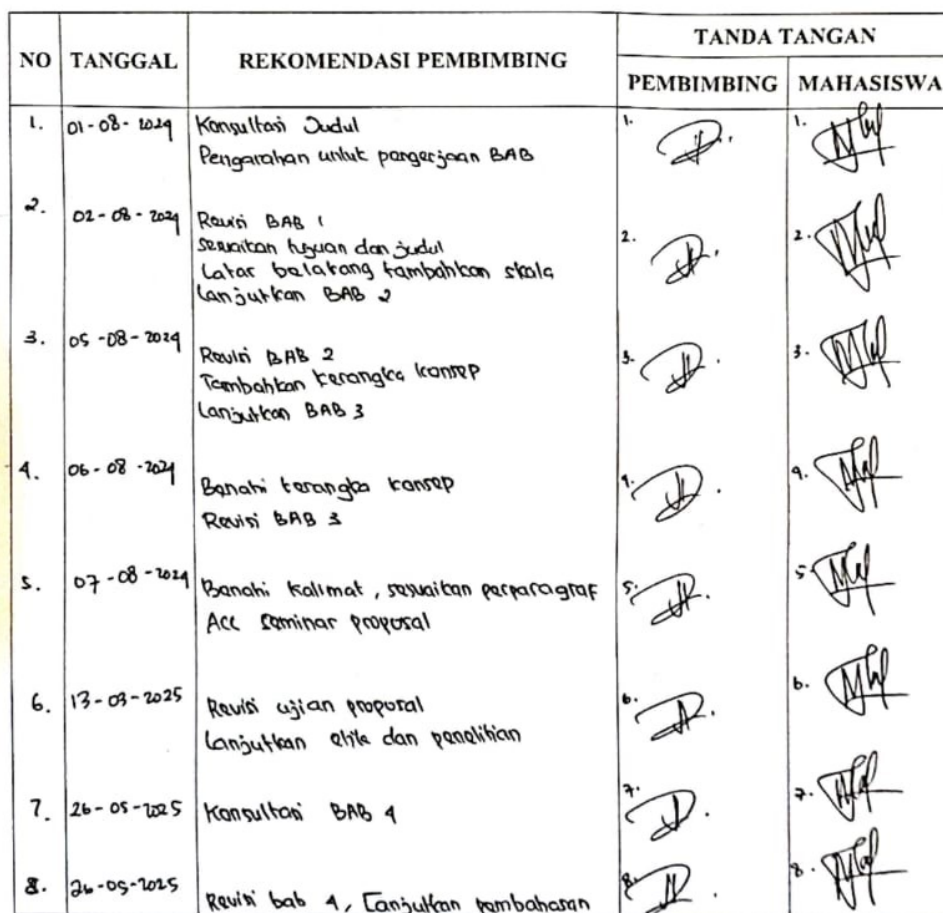 NO TANGGAL REKOMENDASI PEMBIMBING TANDA TANGAN
PEMBIMBING MAHASISWA
1. 01-08-2024 Konsultasi Judul 1. 1.
Pengarahan untuk pengerjaan BAB
2. 02-08-2024 Revisi BAB 1 2. 2.
sesuaikan tujuan dan judul
Latar belakang tambahkan skala
Lanjutkan BAB 2
3. 05-08-2024 Revisi BAB 2 3. 3.
Tambahkan kerangka konsep
Lanjutkan BAB 3
4. 06-08-2024 Benahi kerangka konsep 4. 4.
Revisi BAB 3
5. 07-08-2024 Benahi kalimat, sesuaikan perparagraf 5. 5.
Acc seminar proposal
6. 13-03-2025 Revisi ujian proposal 6. 6.
Lanjutkan etik dan penelitian
7. 26-05-2025 Konsultasi BAB 4 7. 7.
8. 26-05-2025 Revisi bab 4, Lanjutkan pembahasan 8. 8.